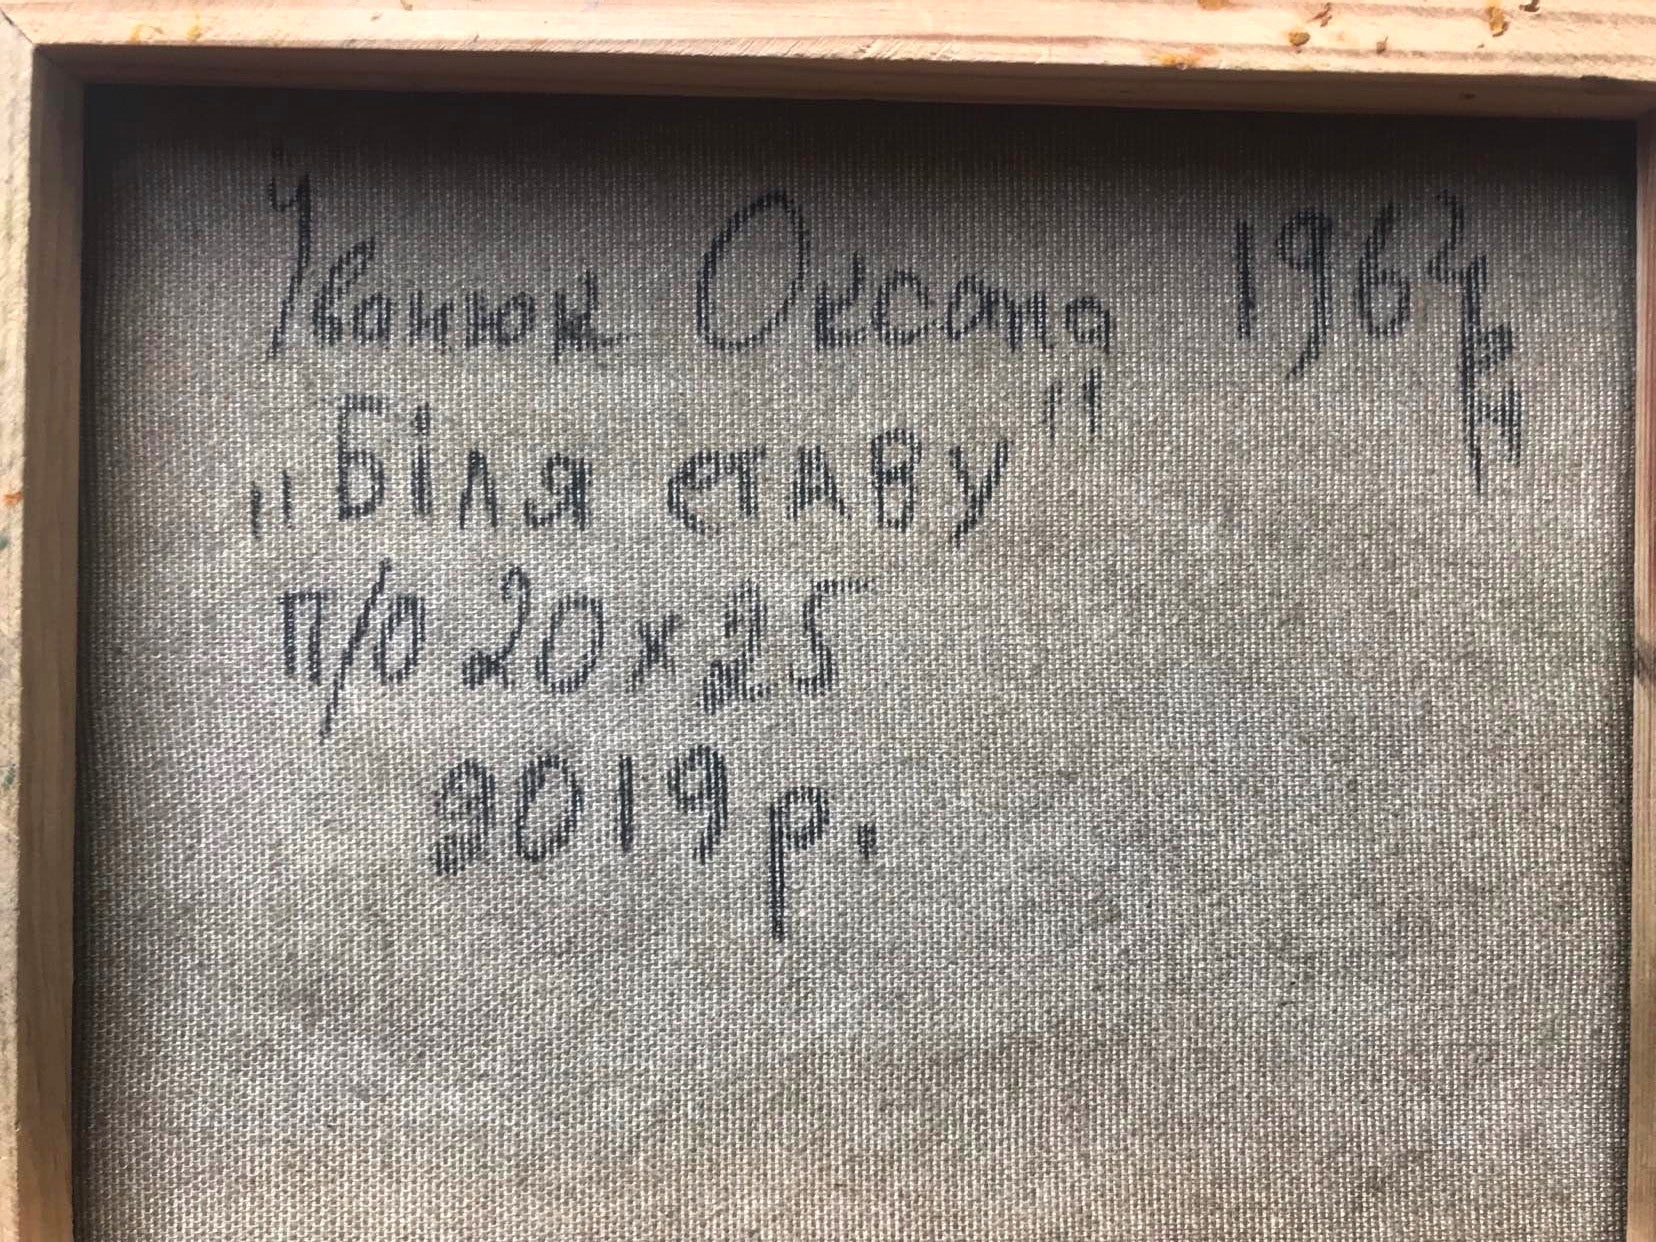 Іванюк Оксана 1964 р н
„Біля ставу"
п/о 20 х 25
2019 р.